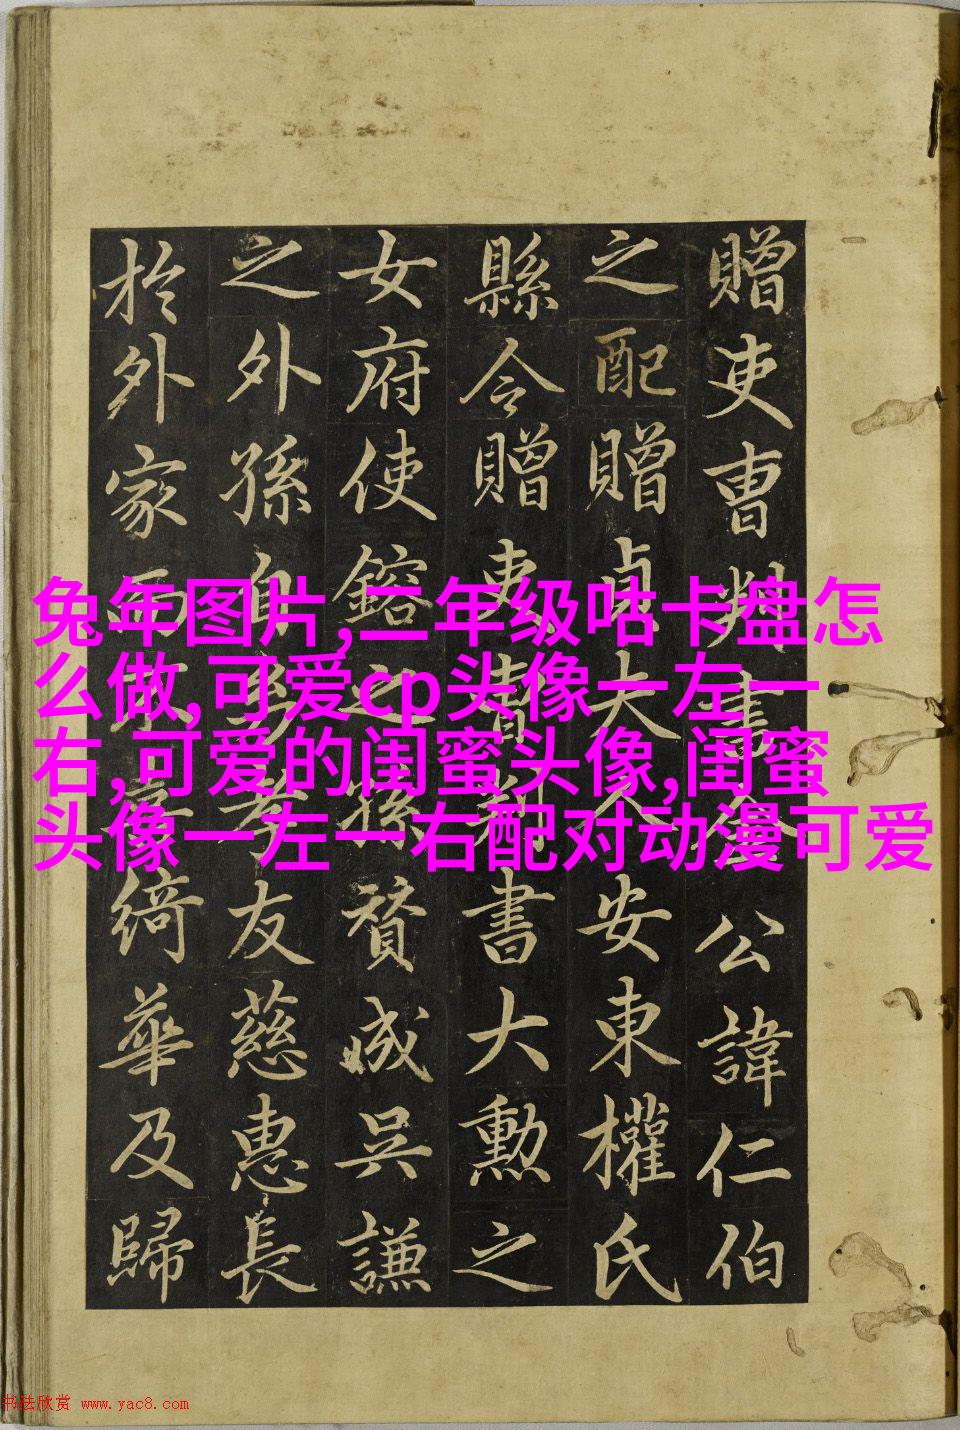 贈吏曹判書金公諱仁伯
之配贈貞夫人安東權氏
縣令贈吏曹判書大勳之
女府使鎔之孫贊成吳謙
之外孫自幼孝友慈惠長
於外家而不喜綺華及歸
兔年图片,二年级咕卡盘怎
么做,可爱cp头像一左一
右,可爱的闺蜜头像,闺蜜
头像一左一右配对动漫可爱
书法欣赏 www.yac8.com